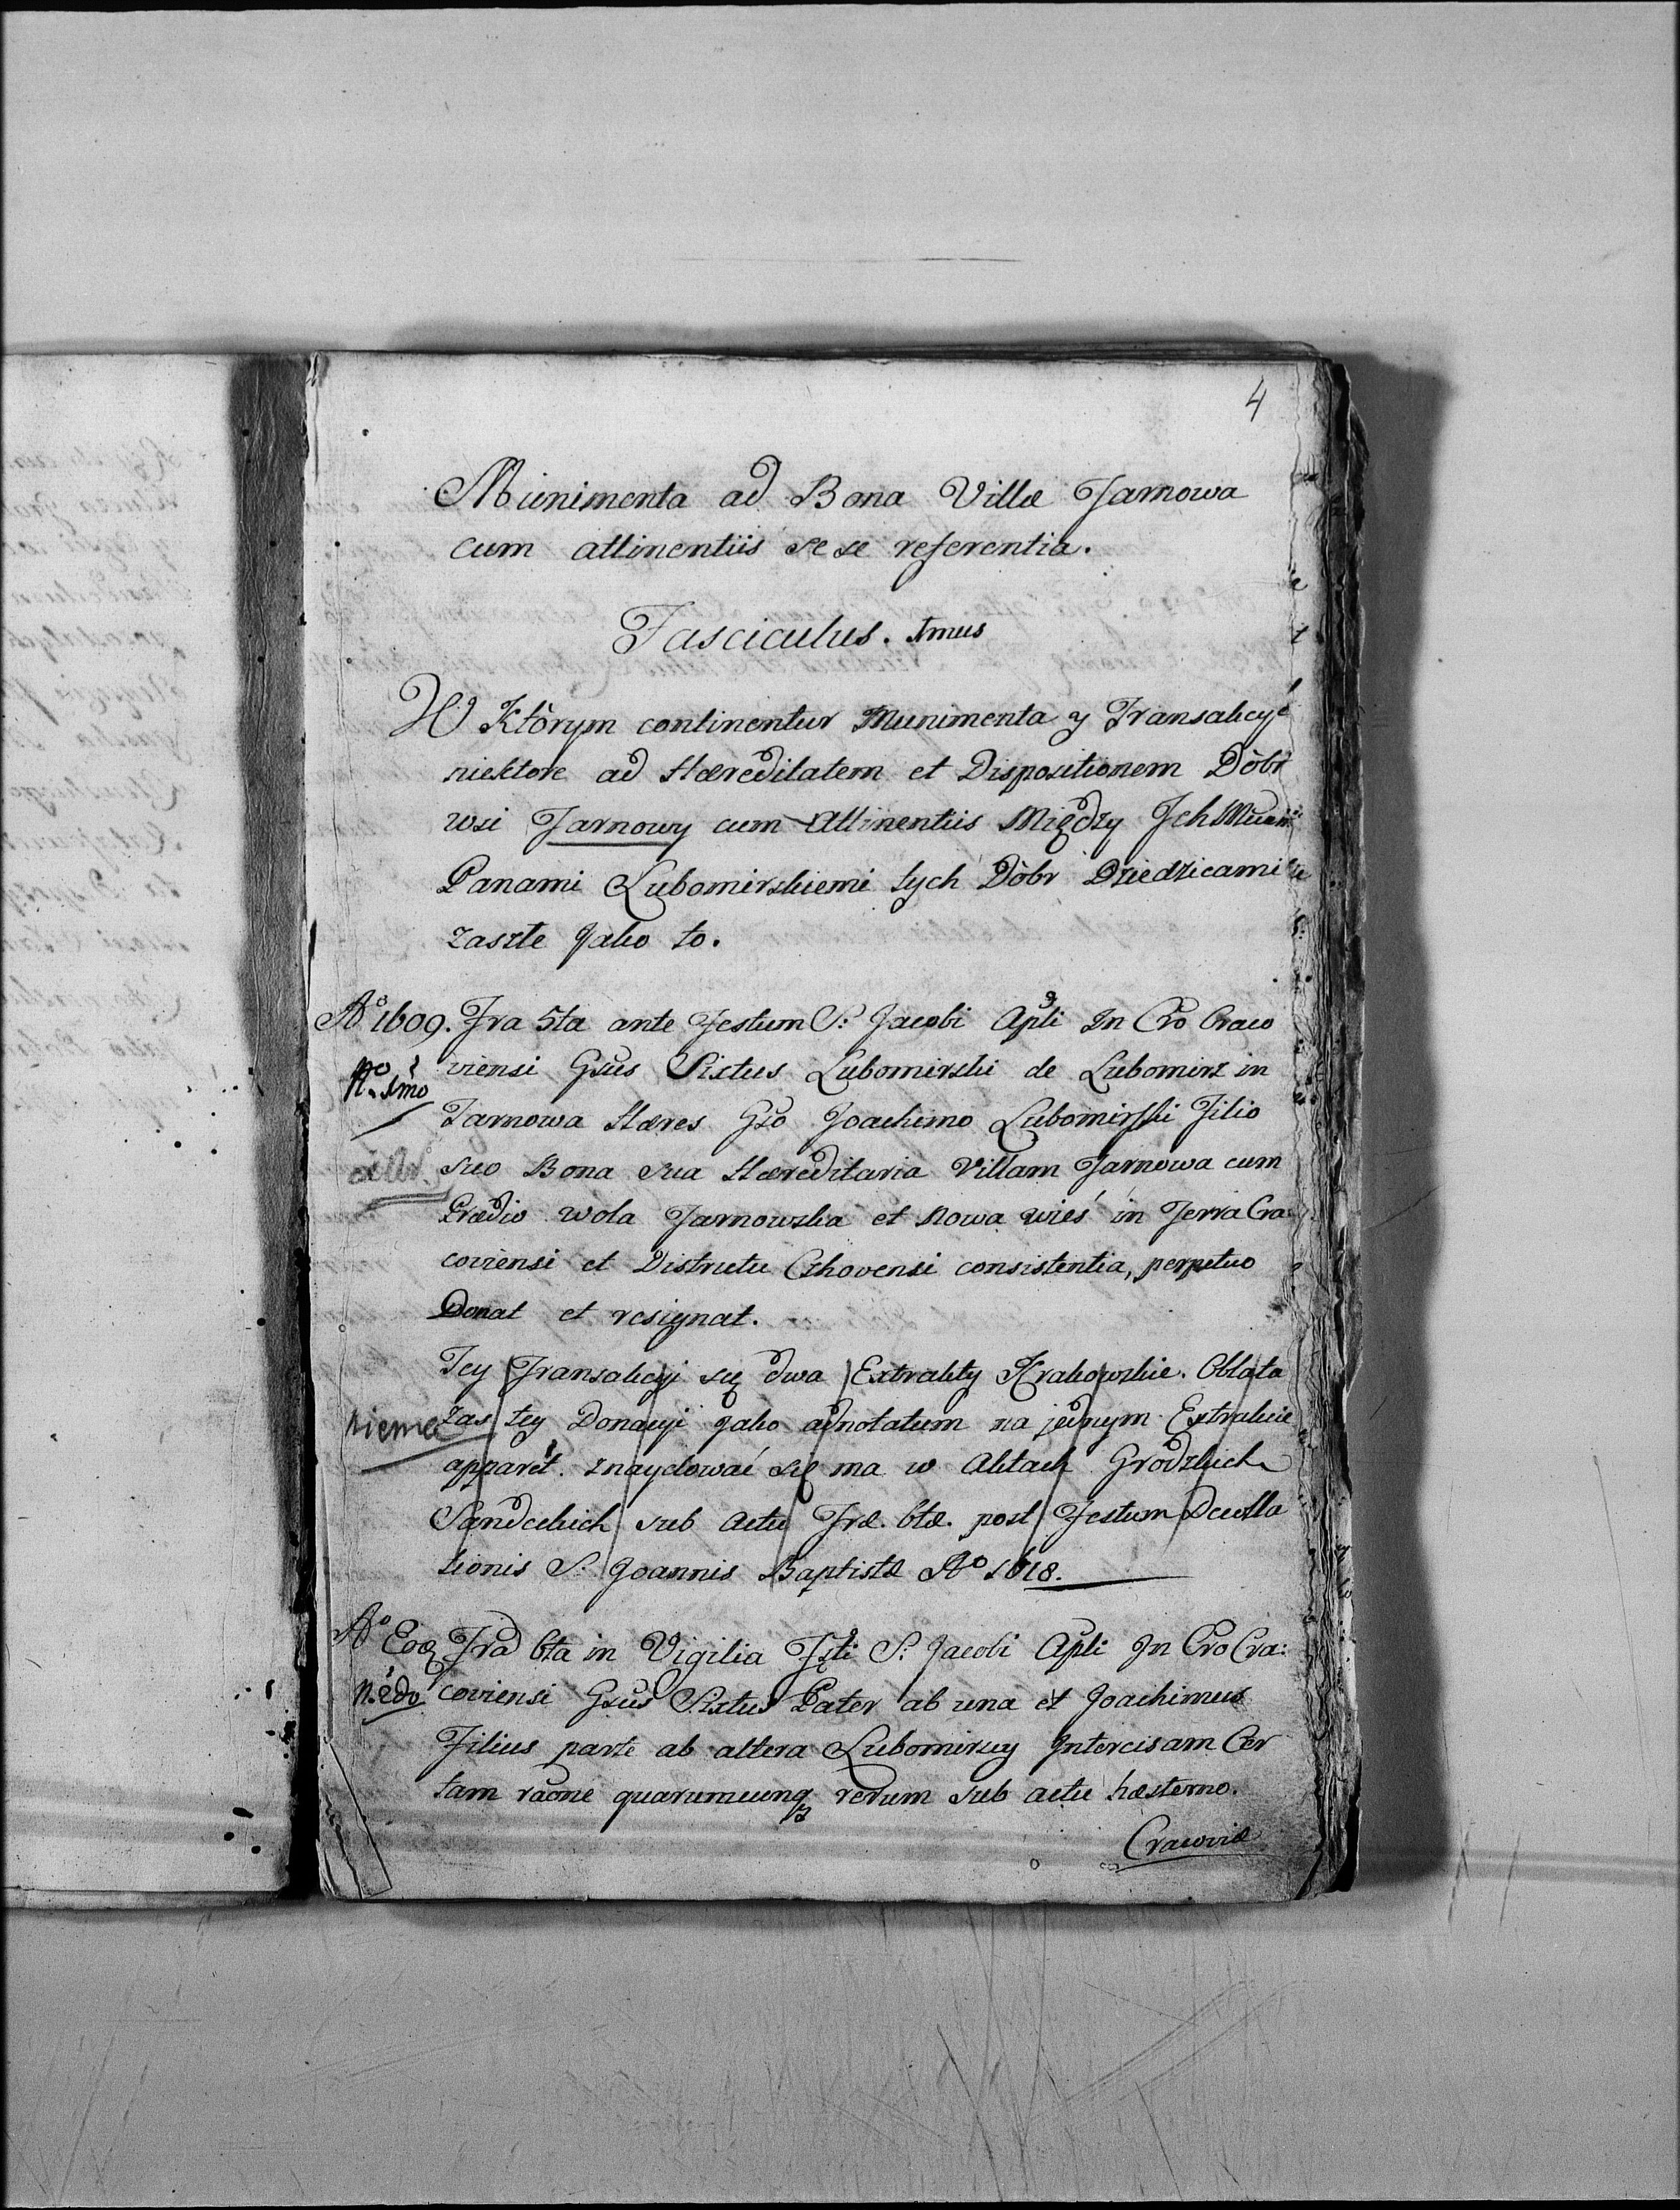 4
Munimenta ad Bona Villæ Tarnowa
cum attinentiis se se referentia.
Fasciculus. 1mus
W Ktòrym continentur Munimenta y Transakcye
niektore ad Hæreditatem et Dispositionem Dòbr
wsi Tarnowy cum Attinentiis Między Ich
Panami Lubomirskiemi tych Dòbr Dziedzicami
zaszłe jako to.
Aº 1609. Fra 5ta ante Festum S: Jacobi Apli In Cro Craco
Nº 1mo
viensi Gsus Sixtus Lubomirski de Lubomirz in
Tarnowa Hæres Gso Joachimo Lubomirski Filio
suo Bona sua Hæreditaria Villam Tarnowa cum
Prædio wola Tarnowska et Nowa wieś in Terra Cra
coviensi et Districtu Czhovensi consistentia, perpetuo
Donat et resignat.
Tey Transakcyi są dwa Extrakty Krakowskie. Oblata
niema
zas tey Donacyi jako adnotatum na jednym Extrakcie
apparet. znaydować się ma w Aktach Grodzkich
Sandeckich sub actu Fræ. 6tæ. post Festum Decolla
tionis S. Joannis Baptistæ Aº 1618.
Aº Eoq Fra 6ta in Vigilia Fsti S. Jacobi Apli In Cro Cra:
N. 2do
coviensi Gsus Sixtus Pater ab una et Joachimus
Filius parte ab altera Lubomirscy Intercisam Cer
tam raone quarumcunq rerum sub actu hæsterno.
Cracoviæ